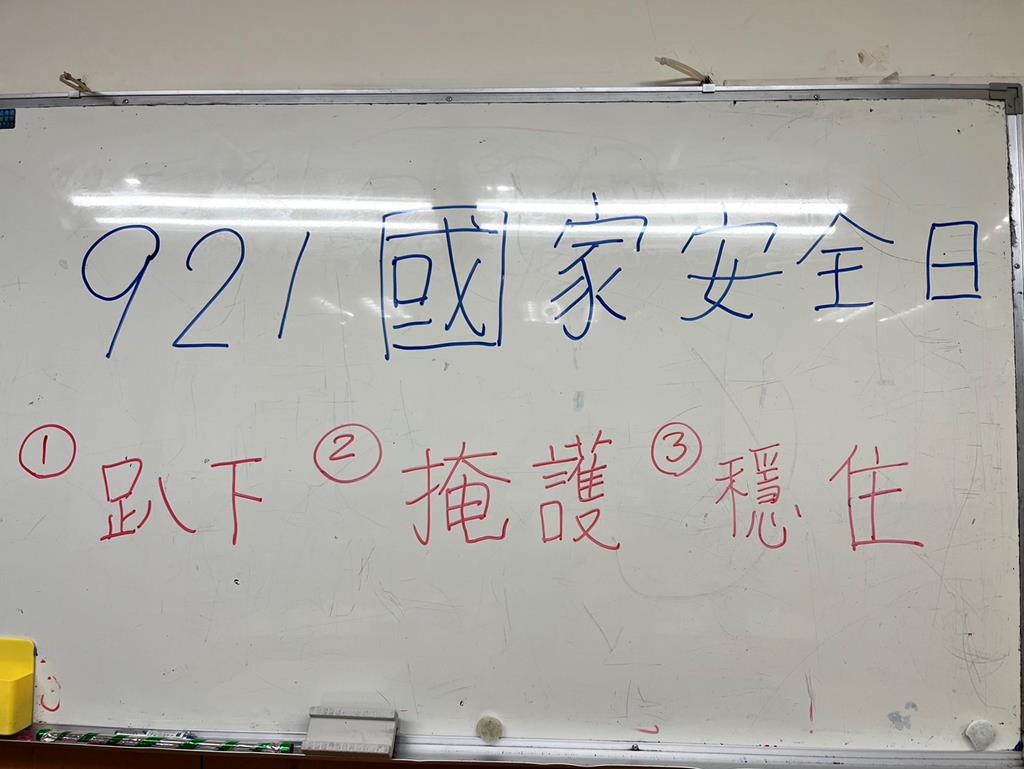 921國家安全日
①趴下 ②掩護 ③穩住